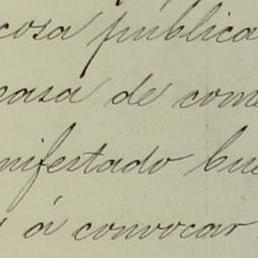 cosa pública
casa de come
nifestado bue
á convocar